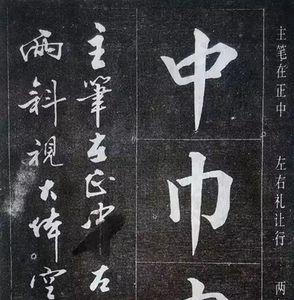 主笔在正中 左右礼让行 两
中巾
主筆在正中左
两斜視大体。空